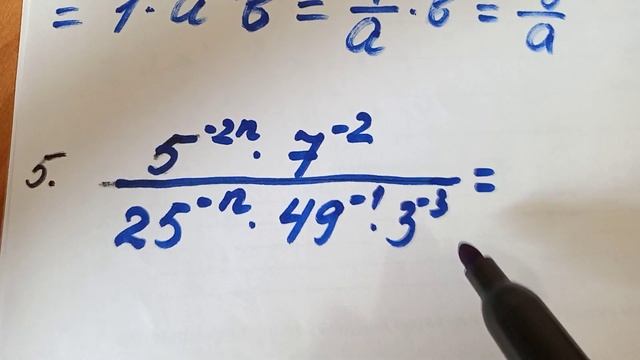 = 1 · a b = 1/a · b = b/a
5. 5⁻²ⁿ · 7⁻² / 25⁻ⁿ · 49⁻¹ · 3⁻³ =